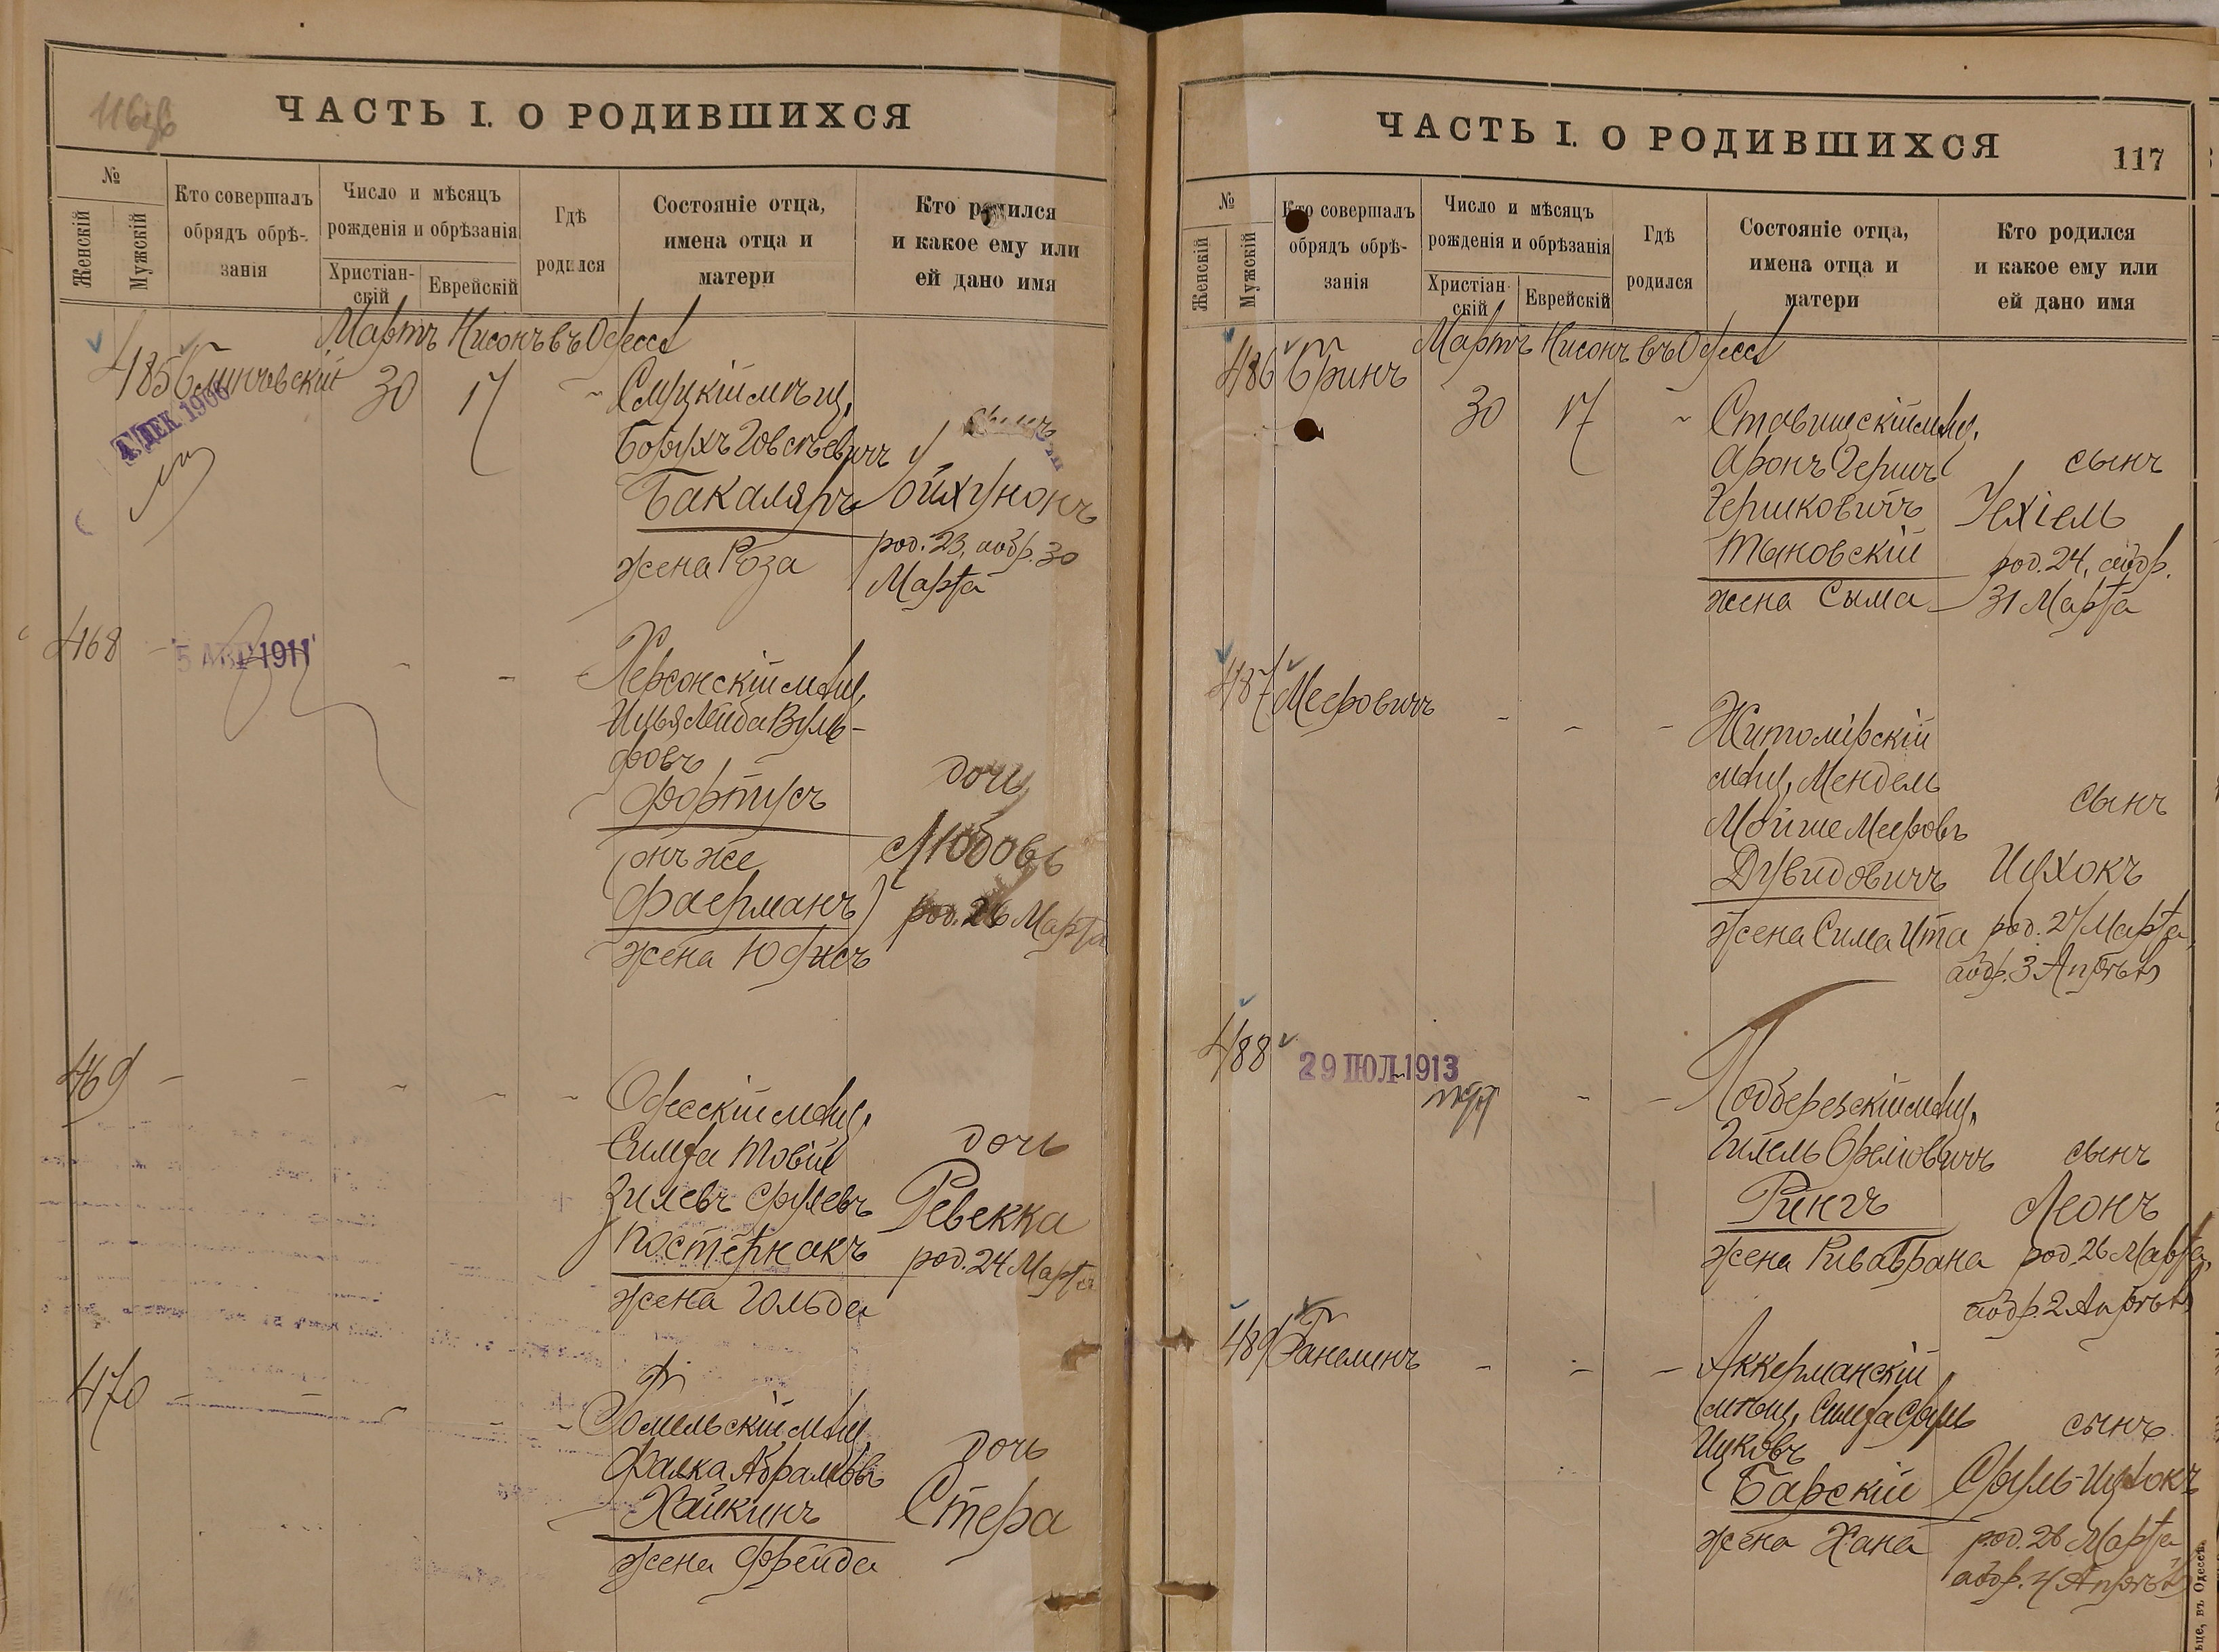 ЧАСТЬ I. О РОДИВШИХСЯ
№
Женскій
Мужскій
Кто совершалъ
обрядъ обрѣ-
занія
Число и мѣсяцъ
рожденія и обрѣзанія
Христіан-
скій
Еврейскій
Гдѣ
родился
Состояніе отца,
имена отца и
матери
Кто родился
и какое ему или
ей дано имя
Мартъ Нисонъ въ Одессѣ
485
30 17
Слуцкій мѣщ.
Борухъ Говсѣевичъ
Бакаляръ
жена Роза
сынъ
Ойхунонъ
род. 23, аобр. 30
Марта
4 ДЕК 1906
468
5 АВГ 1911
Херсонскій мѣщ.
Илья Лейба Вуль-
фовъ
Фортусъ
(онъ же
Фаерманъ)
жена Юфисъ
дочь
Любовь
род. 26 Марта
469
Одесскій мѣщ.
Симха Товій
Зилевъ Срулевъ
Постернакъ
жена Гольда
дочь
Ревекка
род. 24 Марта
470
Гомельскій мѣщ.
Фалка Абрамовъ
Хайкинъ
жена Фрейда
дочь
Стера
ЧАСТЬ I. О РОДИВШИХСЯ
117
№
Женскій
Мужскій
Кто совершалъ
обрядъ обрѣ-
занія
Число и мѣсяцъ
рожденія и обрѣзанія
Христіан-
скій
Еврейскій
Гдѣ
родился
Состояніе отца,
имена отца и
матери
Кто родился
и какое ему или
ей дано имя
Мартъ Нисонъ въ Одессѣ
486 Гринъ
30 17
Ставищскій мѣщ.
Аронъ Гершъ
Гершковичъ
Тыновскій
жена Сыма
сынъ
Іехіель
род. 24, аобр.
31 Марта
487 Мееровичъ
Житомірскій
мѣщ. Мендель
Мойше Мееровъ
Дувидовичъ
жена Сима Ита
сынъ
Ицхокъ
род. 27 Марта,
аобр. 3 Апрѣля
488
29 ІЮЛ 1913
Подберезскій мѣщ.
Гилель
Рингъ
жена Рива Брана
сынъ
Леонъ
род. 26 Марта,
аобр. 2 Апрѣля
489
Аккерманскій
мѣщ. Симха Сруль
Ицковъ
Барскій
жена Хана
сынъ
Сруль-Ицхокъ
род. 28 Марта
аобр. 4 Апрѣля